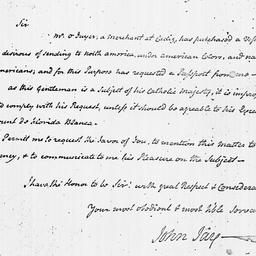 Sir
Mr. O Dwyer, a Merchant at Cadiz, has purchased a Vess
desirous of sending to north america under american Colors, and na
mericans; and for this Purpose has requested a Passport from me —
as this Gentleman is a Subject of his Catholic Majesty, it is improp
to comply with his Request, unless it should be agreable to his Excel
ount de Florida Blanca.
Permit me to request the favor of you, to mention this matter to
ency, & to communicate to me his Pleasure on the Subject —
I have the Honor to be Sir! with great Respect & Considera
Your most obedient & most h'ble Serva
John Jay —